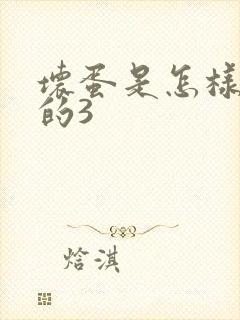 壞蛋是怎樣
的3
焓淇